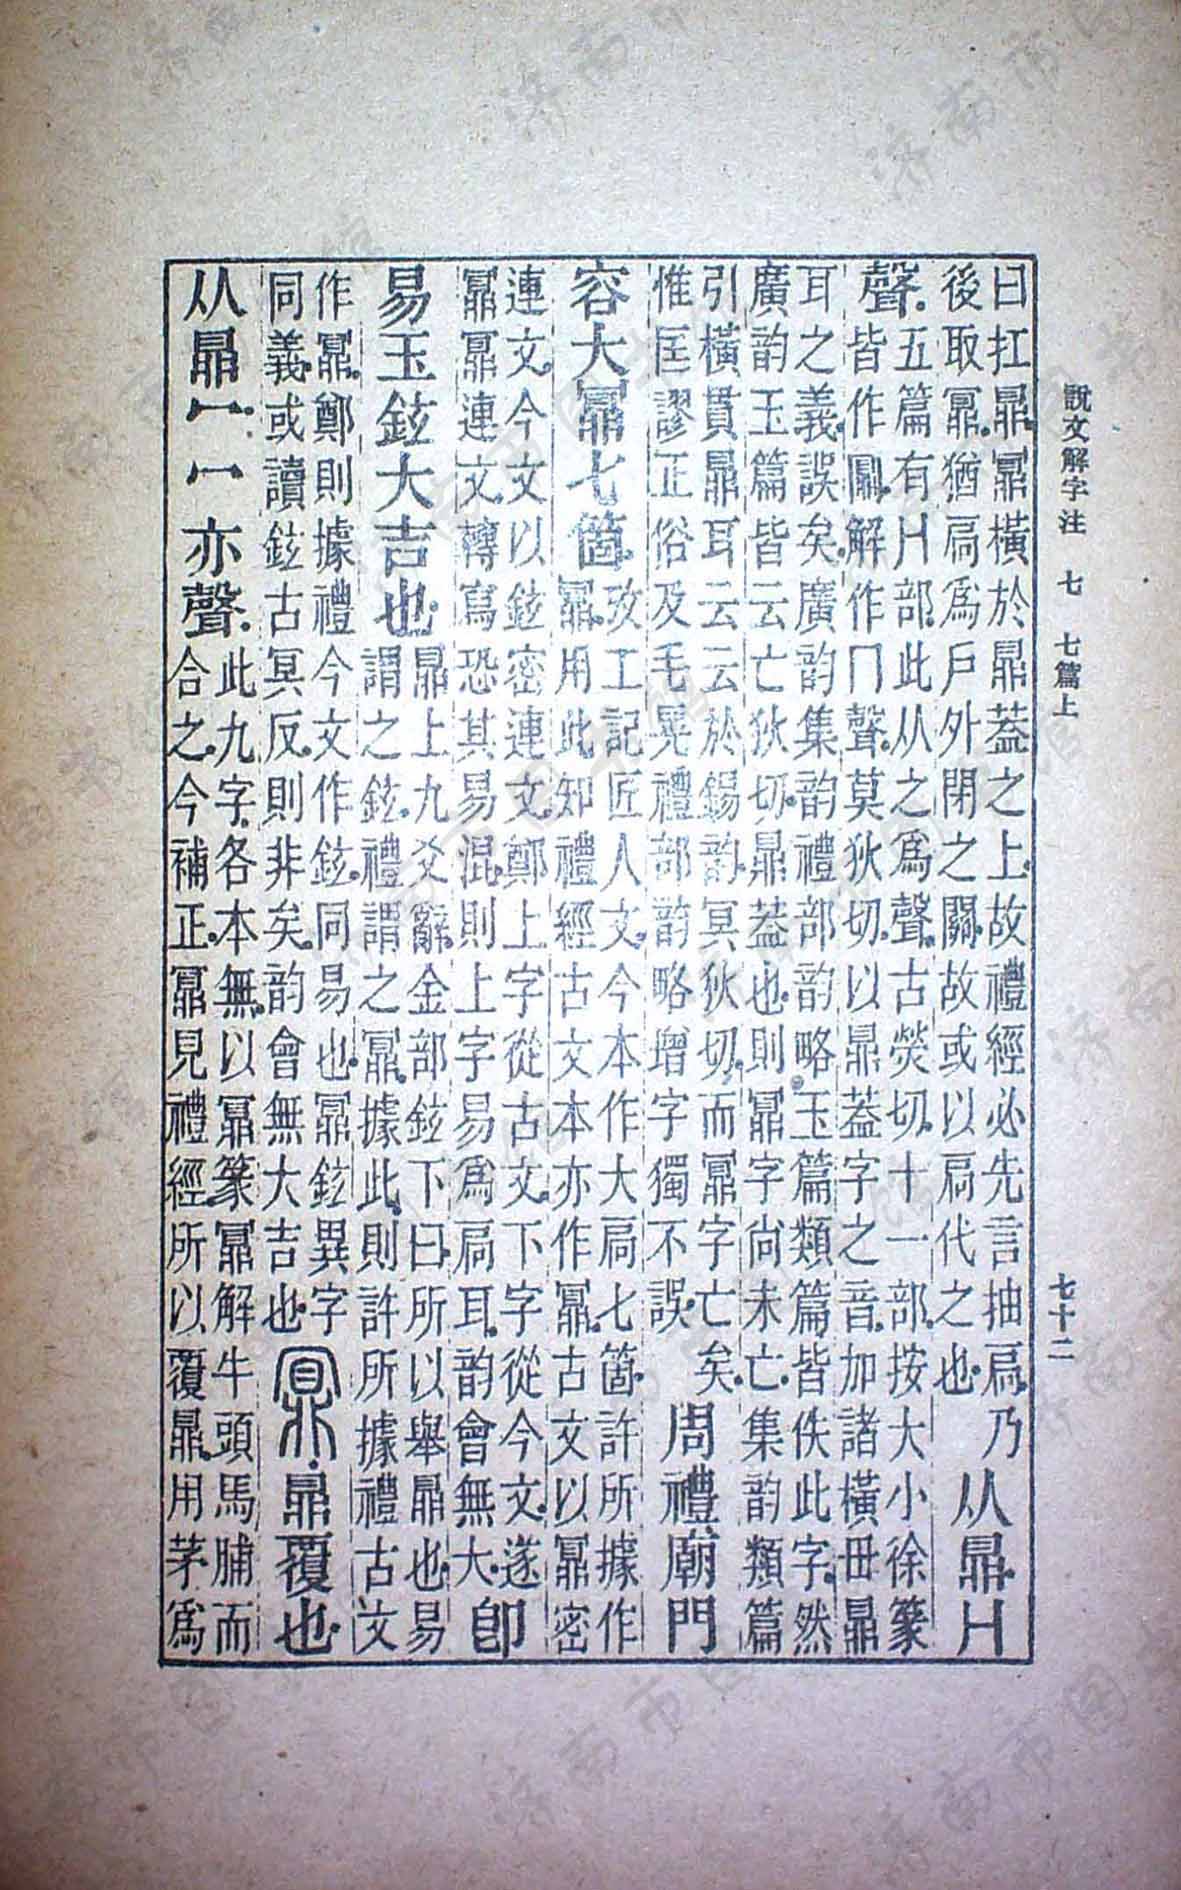 說文解字注 七 七篇上 七十二
曰扛鼎鼏橫於鼎蓋之上故禮經必先言抽扃乃
後取鼏猶扃爲戶外閉之關故或以扃代之也
从鼎冂
聲
五篇有冂部此从之爲聲古熒切十一部按大小徐篆
皆作鼏解作冂聲莫狄切以鼎蓋字之音加諸橫毌鼎
耳之義誤矣廣韵集韵禮部韵略玉篇類篇皆佚此字然
廣韵玉篇皆云亡狄切鼎蓋也則鼏字尚未亡集韵類篇
引橫貫鼎耳云云於錫韵冥狄切而鼏字亡矣
惟匡謬正俗及毛晃禮部韵略增字獨不誤
周禮廟門
容大鼏七箇
攷工記匠人文今本作大扃七箇許所據作
鼏用此知禮經古文本亦作鼏古文以鼏密
連文今文以鉉密連文鄭上字從古文下字從今文遂
鼏鼏連文轉寫恐其易混則上字易爲扃耳韵會無大
卽
易玉鉉大吉也
鼎上九爻辭金部鉉下曰所以舉鼎也易
謂之鉉禮謂之鼏據此則許所據禮古文
作鼏鄭則據禮今文作鉉同易也鼏鉉異字
同義或讀鉉古冥反則非矣韵會無大吉也
鼏鼎覆也
从鼎冖冖亦聲
此九字各本無以鼏篆鼏解牛頭馬脯而
合之今補正鼏見禮經所以覆鼎用茅爲